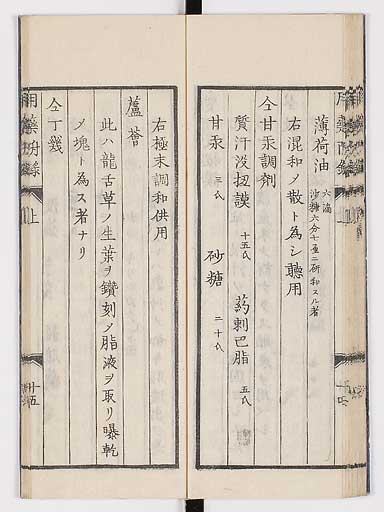 薄荷油 六滴 沙糖六分十五ニ研和スル者
右混和メ散ト為シ聽用
仝甘汞調劑
質汗没扭謨 十五氏 葯刺巴脂 五氏
甘汞 三氏 砂糖 二十氏
右極末調和供用
蘆薈
此ハ龍舌草ノ生葉ヲ鑽刻メ脂液ヲ取リ曝乾
メ塊ト為ス者ナリ
仝丁幾
用藥 上 十五